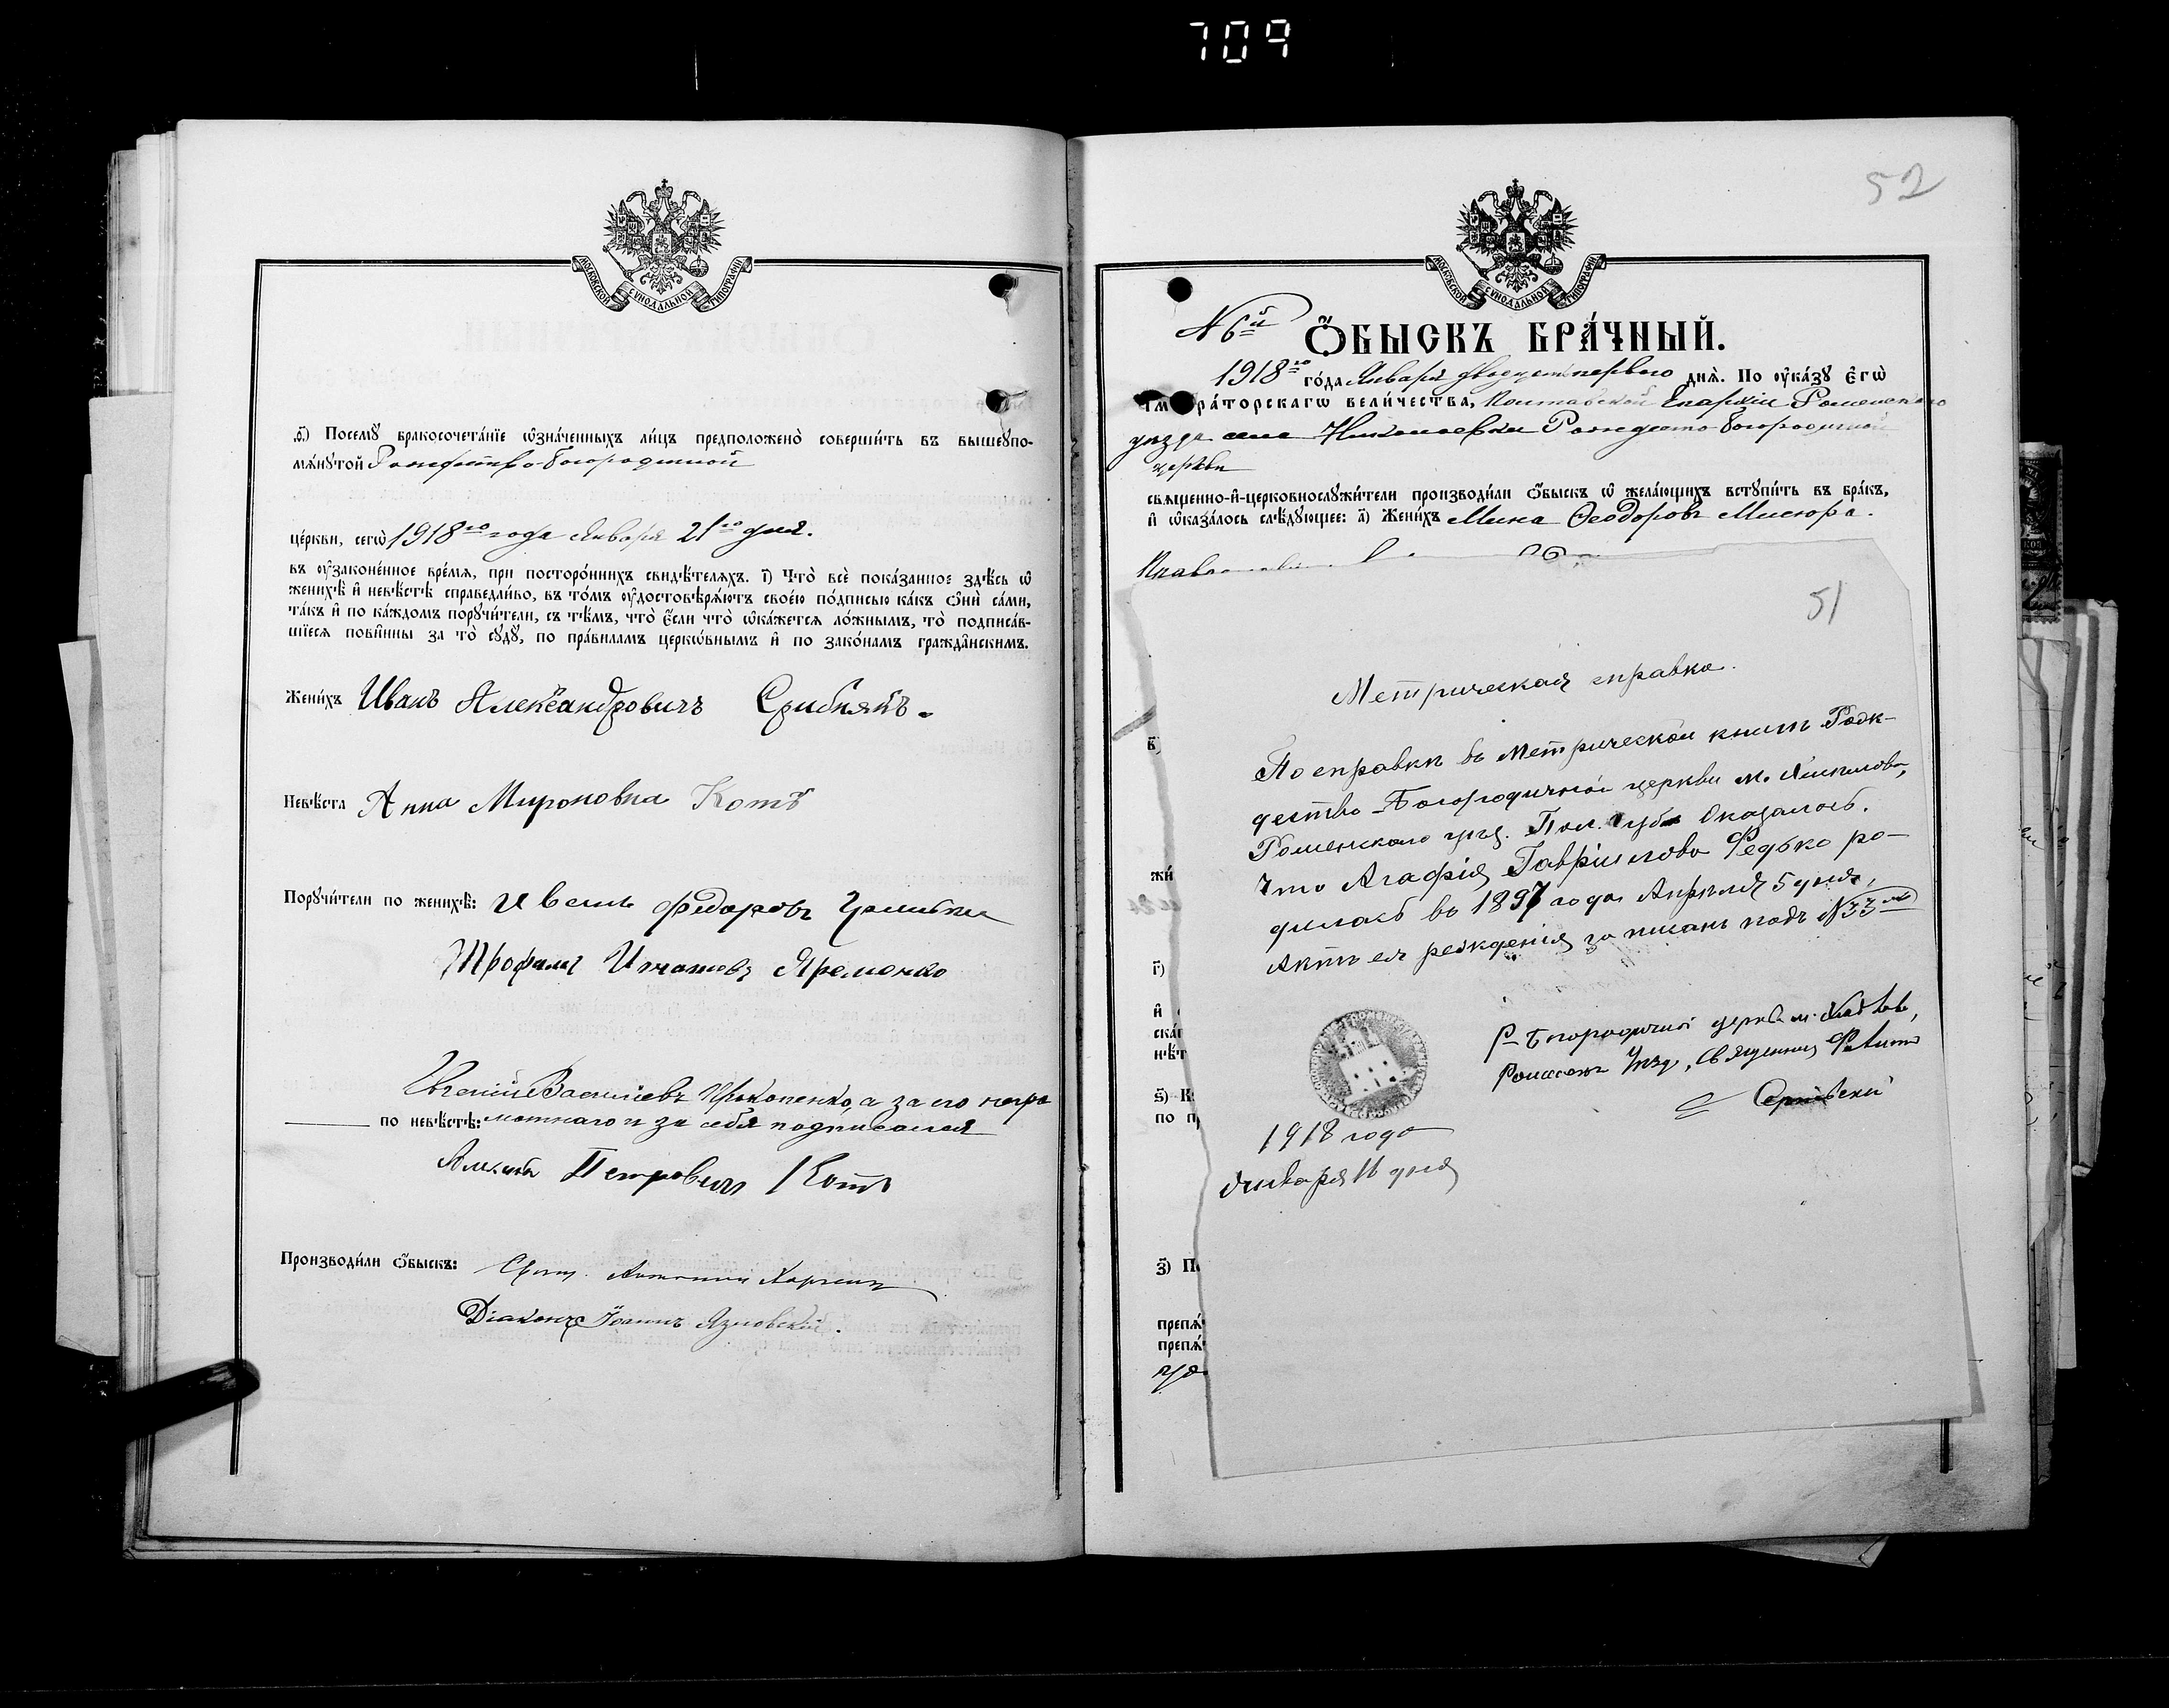 709
МОСКОВСКОЙ СУНОДАЛЬНОЙ ТИПОГРАФИИ
Посемꙋ̀ бракосочета́нїе ѡ҆зна́ченныхъ ли́цъ предположено̀ соверши́ть въ вышеꙋпо-
мѧ́нꙋтой Рождество-Богородичной
це́ркви, сегѡ̀ 1918го года Января 21го дня.
въ ᲂу҆зако́ненное вре́мѧ, при посторо́ннихъ свидѣ́телѧхъ. г҃) Что̀ всѐ пока́занное здѣ́сь ѡ҆
женихѣ̀ и҆ невѣ́стѣ справедли́во, въ то́мъ ᲂу҆достовѣрѧ́ютъ свое́ю по́дписью ка́къ ѻ҆нѝ са́ми,
та́къ и҆ по ка́ждомъ порꙋчи́тели, съ тѣ́мъ, что̀ є҆́сли что̀ ѡ҆ка́жетсѧ ло́жнымъ, то̀ подписа́в-
шїесѧ пови́нны за то̀ сꙋдꙋ̀, по пра́виламъ церкѡ́внымъ и҆ по зако́намъ гражда́нскимъ.
Жени́хъ Иванъ Александровичъ Срибнякъ.
Невѣ́ста Анна Мироновна Котъ
Порꙋчи́тели по женихѣ̀: Федоровъ
Трофимъ Игнатовъ Яременко
Евгений Васильевъ Прокопенко, а за его негра
по невѣ́стѣ: мотнаго и за себя подписался
Петровичъ Котъ
Производи́ли ѻ҆́быскъ: Свящ. Антоній
Діаконъ Іоаннъ Язловскій.
52
МОСКОВСКОЙ СУНОДАЛЬНОЙ ТИПОГРАФИИ
N 6й
Ѻ҆́БЫСКЪ БРА́ЧНЫЙ.
1918го го́да Января двадцать перваго днѧ̀. По ᲂу҆ка́зꙋ Е҆гѡ̀
И҆м ра́торскагѡ вели́чества, Полтавской Епархіи Роменскаго
уѣзда села Николаевки Рождество-Богородичной
церкви
свѧще́нно-и҆-церковнослꙋжи́тели производи́ли ѻ҆́быскъ ѡ҆ жела́ющихъ встꙋпи́ть въ бра́къ,
и҆ ѡ҆каза́лось слѣ́дꙋющее: а҃) Жени́хъ Мина Ѳеодоровъ Мисюра.
51
Метрическая справка.
По справкѣ въ Метрической книгѣ Рож-
дество-Богородичной церкви м. Хмѣлова,
Роменскаго уѣз. Пол. губ. Оказалось.
Что Агафія Гавріилова Федько ро-
дилась въ 1897 года Апрѣля 5 дня,
Актъ ея рожденія записанъ подъ N 33
Р-Богородичной церкви м.
Роменск. уѣзд., Священник
Сергіевскій
1918 года
Января 11 дня
в҃)
жи́
г҃)
и҆
ска́
нѣ́т
ѕ҃) К
по п
з҃) П
препѧ́
препѧ́